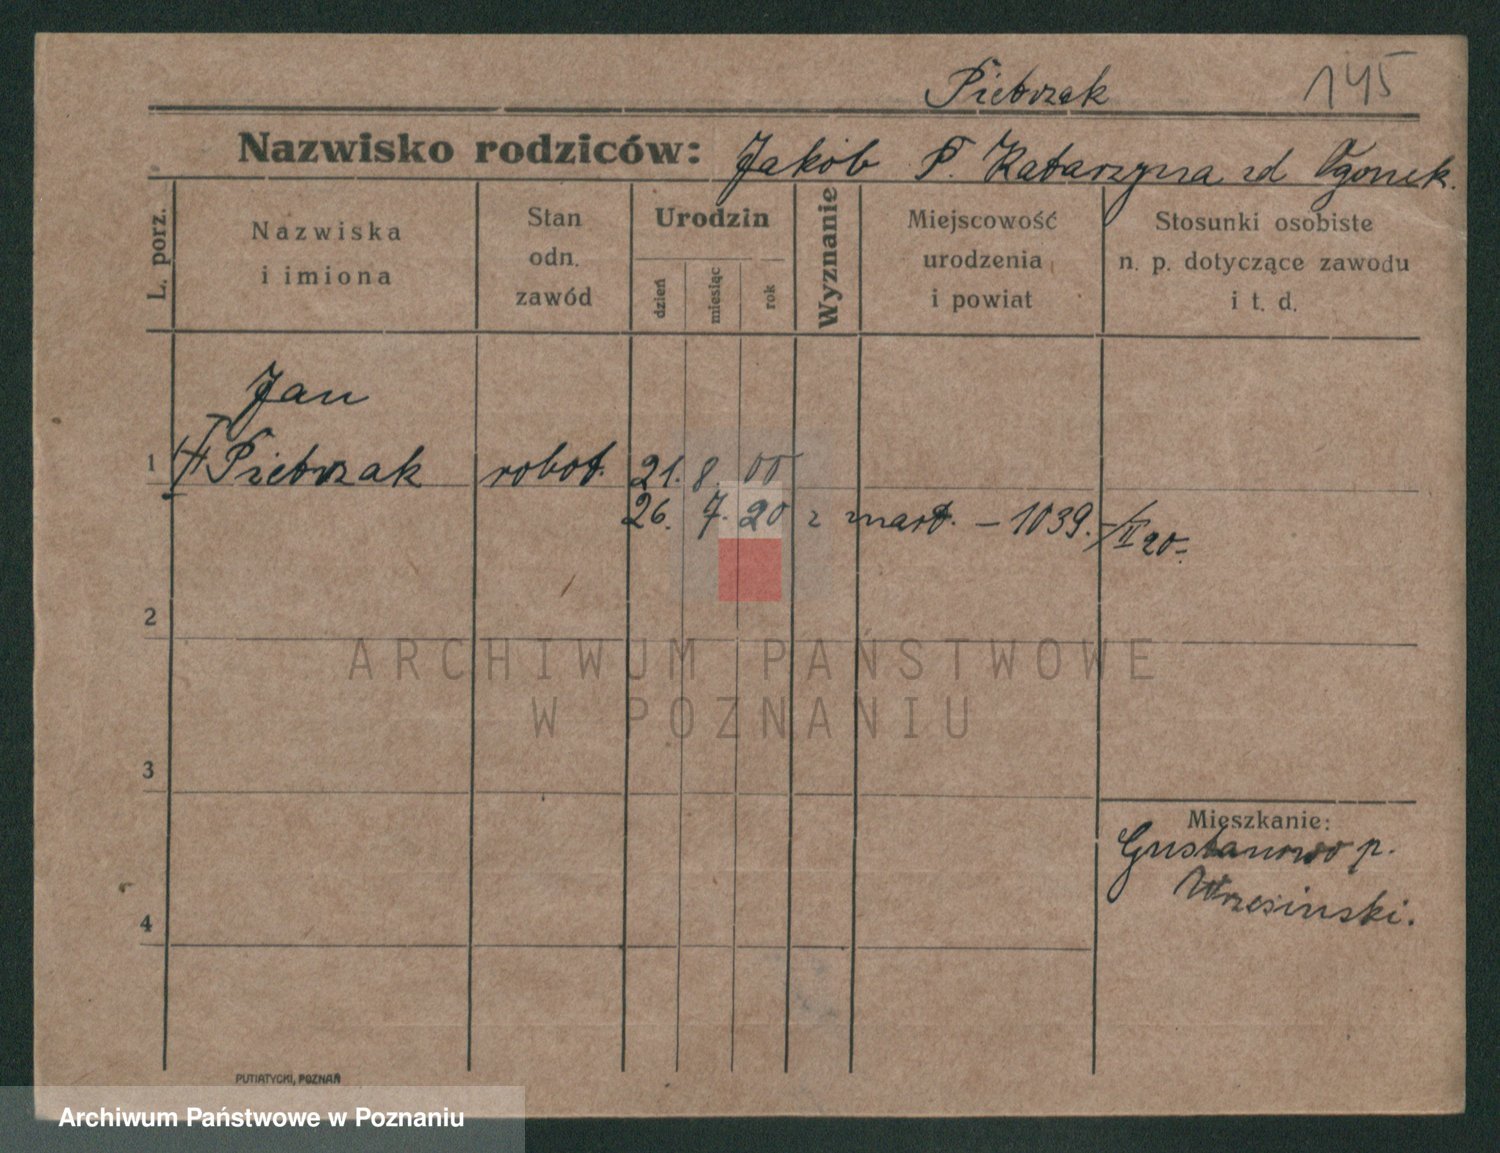 Pietrzak 145
Nazwisko rodziców: Jakób P. Katarzyna zd Ogonek.
L. porz.
Nazwiska
i imiona
Stan
odn.
zawód
Urodzin
dzień
miesiąc
rok
Wyznanie
Miejscowość
urodzenia
i powiat
Stosunki osobiste
n. p. dotyczące zawodu
i t. d.
Jan
1 Pietrzak robot. 21. 8. 00
26. 7. 20 z mart. – 1039. /II 20.
2
3
4
Mieszkanie:
Gustanowo p.
Wrzesinski.
PUTIATYCKI, POZNAŃ
ARCHIWUM PAŃSTWOWE
W POZNANIU
Archiwum Państwowe w Poznaniu